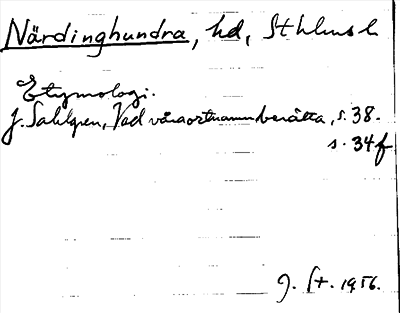 Närdinghundra, hd, Sthlms l.
Etymologi.
J. Sahlgren, Vad våra ortnamn berätta, s. 38.
s. 34f
J. St. 1956.